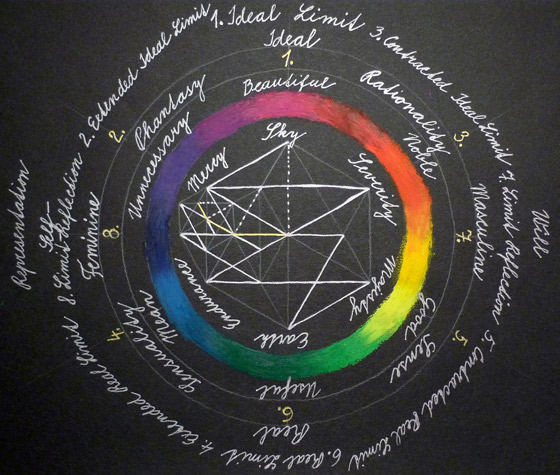 1. Ideal Limit
3. Contracted Ideal Limit
7. Limit Reflection
5. Contracted Real Limit
6. Real Limit
4. Extended Real Limit
8. Limit-Reflection
Self-
2. Extended Ideal Limit
Representation
Will
Ideal
1.
Beautiful
Rationality
Noble
3.
Masculine
7.
Good
Sense
5.
Useful
6.
Real
Mean
Sensuality
4.
Feminine
8.
Unnecessary
Phantasy
2.
Sky
Severity
Majesty
Earth
Endurance
Mercy